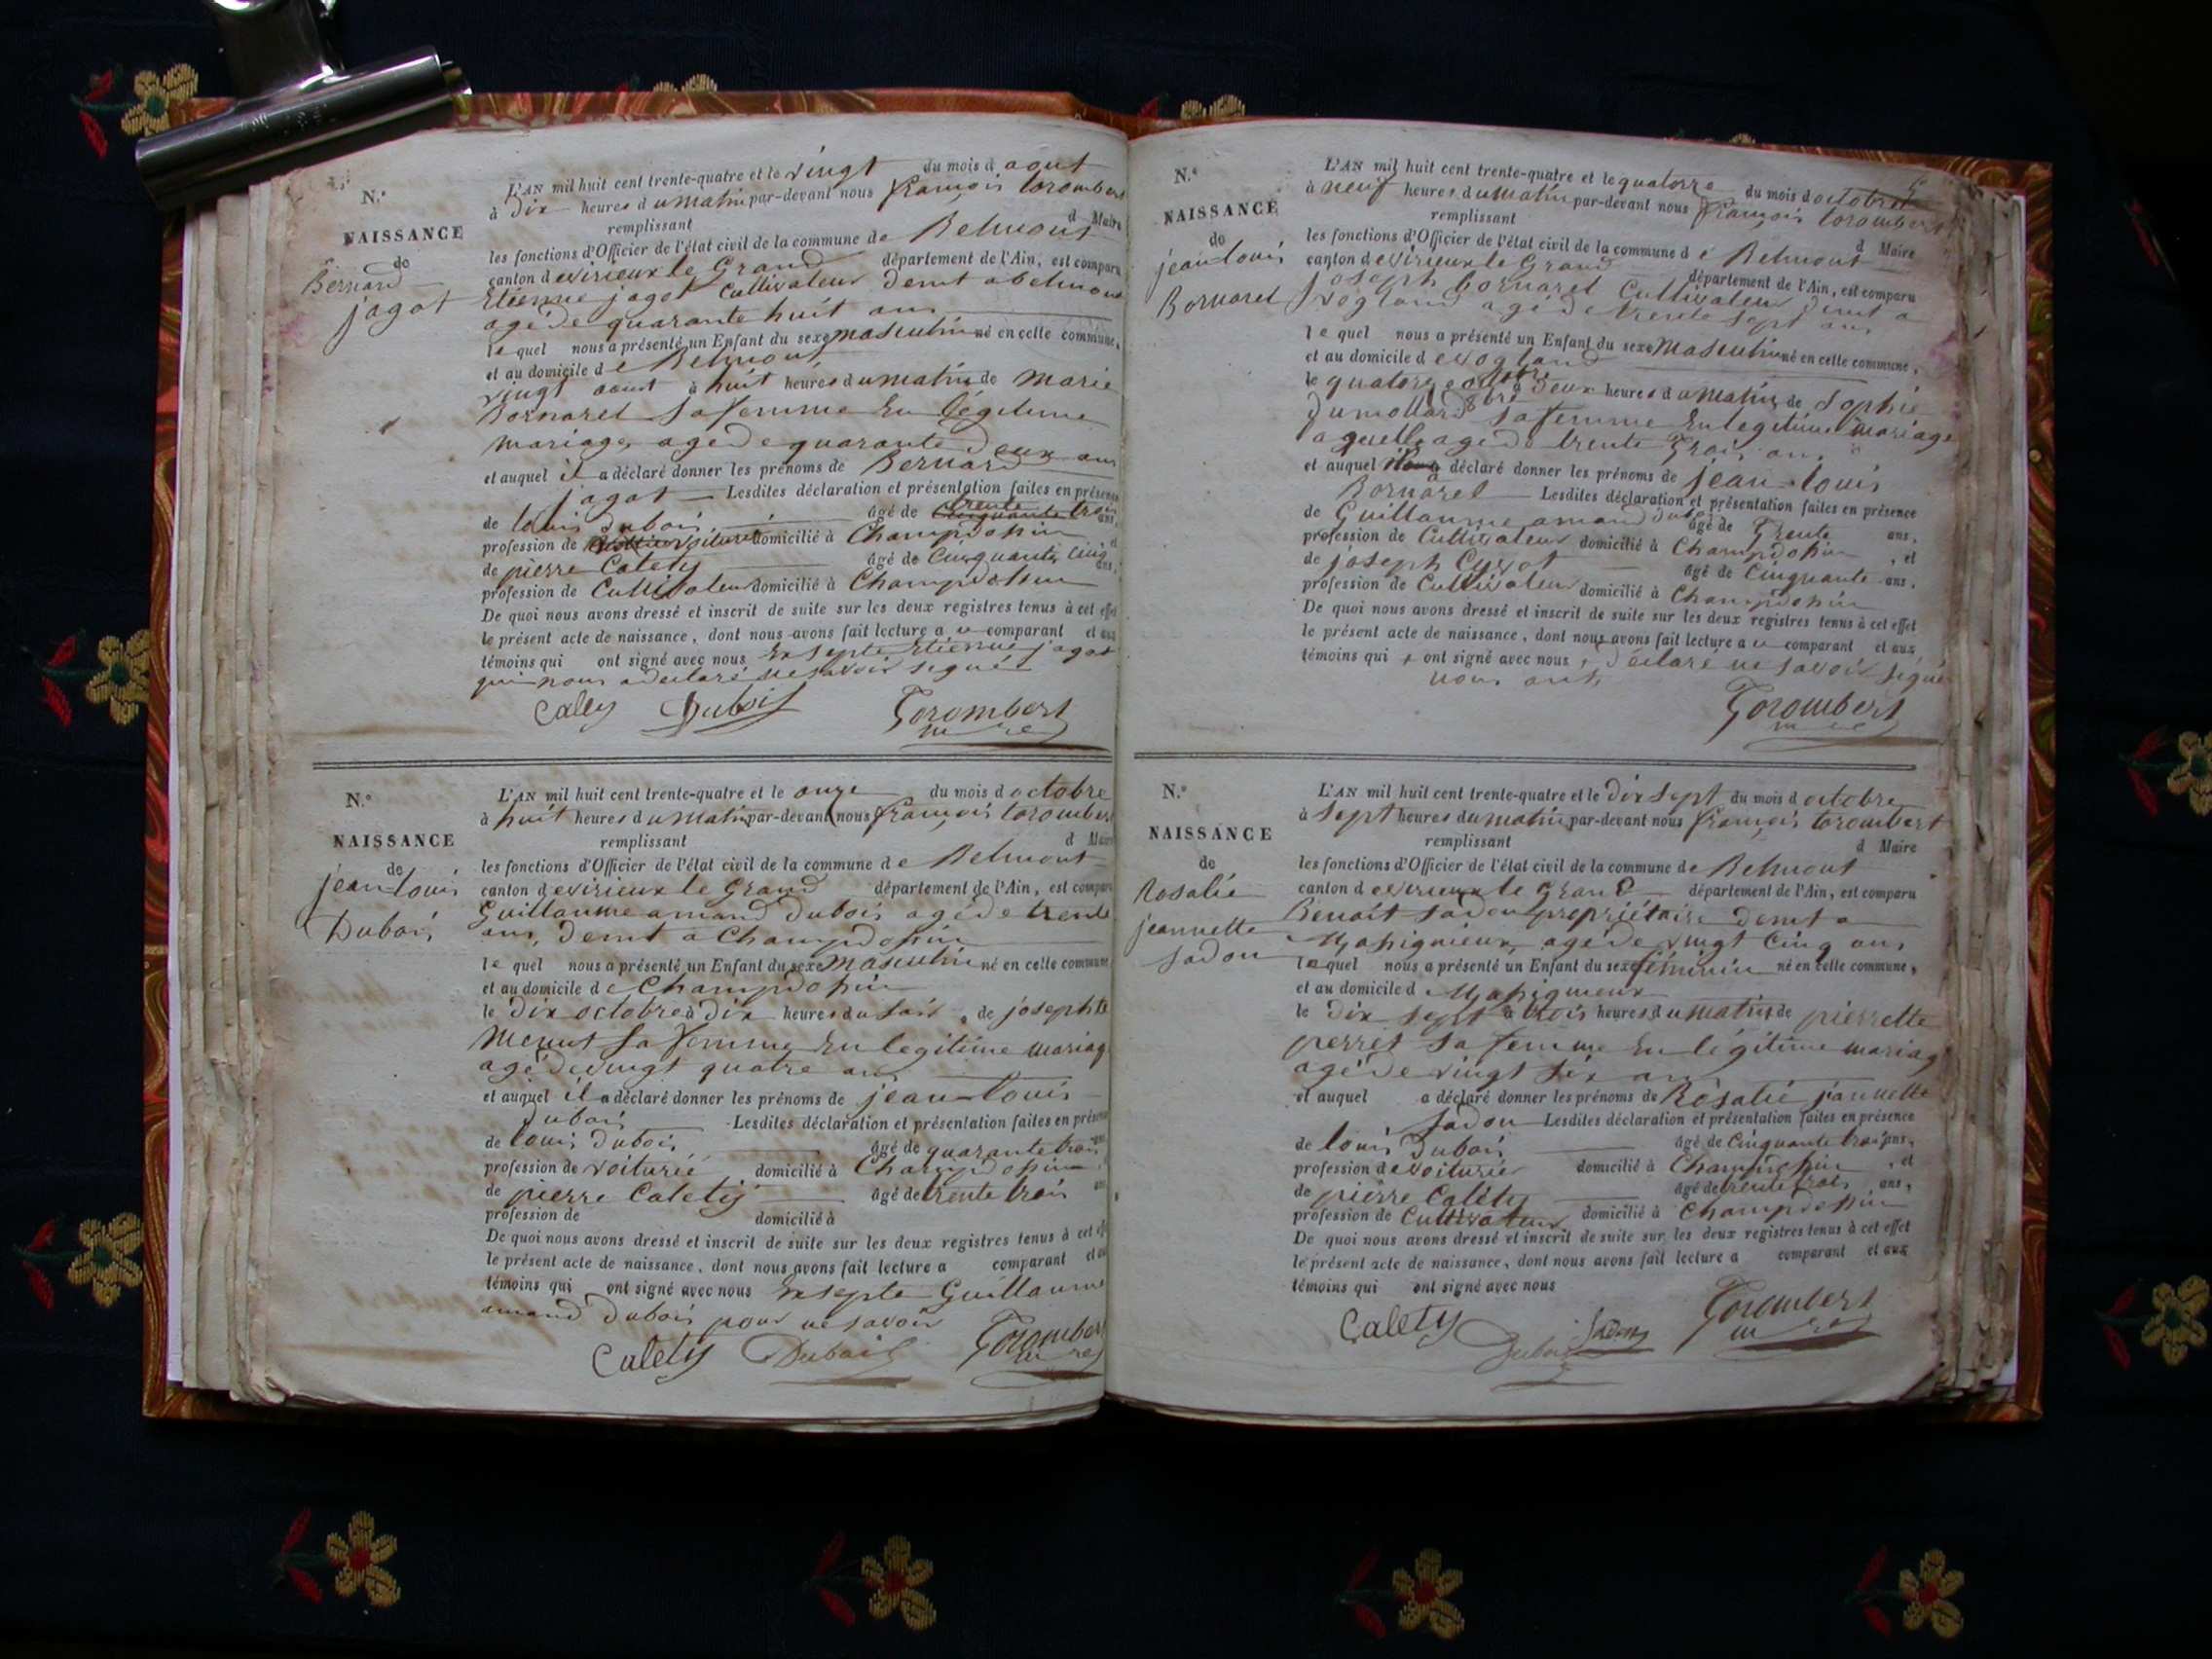 N.°
NAISSANCE
de
Bernard
jagot
L'AN mil huit cent trente-quatre et le vingt du mois d aout
à Dix heures du matin par-devant nous françois torombert
remplissant d Maire
les fonctions d'Officier de l'état civil de la commune de Belmont
canton de virieux le Grand département de l'Ain, est comparu
Etienne jagot Cultivateur demt a belmont
agé de quarante huit ans
lequel nous a présenté un Enfant du sexe masculin né en celle commune,
et au domicile de Belmont
vingt aout à huit heures du matin de marie
Bornarel sa femme En légitime
mariage, agé de quarante deux ans
et auquel il a déclaré donner les prénoms de Bernard
jagot Lesdites déclaration et présentation faites en présence
de louis dubois âgé de cinquante trente trois ans,
profession de voiturié domicilié à Champdossin et
de pierre Catety âgé de Cinquante Cinq ans,
profession de Cultivateur domicilié à Champdossin
De quoi nous avons dressé et inscrit de suite sur les deux registres tenus à cet effet
le présent acte de naissance, dont nous avons fait lecture a u comparant et aux
témoins qui ont signé avec nous Exsepte Etienne jagot
qui nous a declaré ne savoir signér
Catety Dubois Torombert
maire
N.°
NAISSANCE
de
jean louis
Dubois
L'AN mil huit cent trente-quatre et le onze du mois d octobre
à huit heures du matin par-devant nous françois torombert
remplissant d Maire
les fonctions d'Officier de l'état civil de la commune de Belmont
canton de virieux le Grand département de l'Ain, est comparu
Guillaume amand Dubois agé de trente
ans, demt a Champdossin
lequel nous a présenté un Enfant du sexe masculin né en celle commune
et au domicile de Champdossin
le Dix octobre à Dix heures du soir de josephte
Menut sa femme En legitime mariage
agé de vingt quatre ans
et auquel il a déclaré donner les prénoms de jean-louis
Dubois Lesdites déclaration et présentation faites en présence
de louis Dubois âgé de quarante trois ans
profession de voiturié domicilié à Champdossin
de pierre Catety âgé de trente trois ans
profession de domicilié à
De quoi nous avons dressé et inscrit de suite sur les deux registres tenus à cet effet
le présent acte de naissance, dont nous avons fait lecture a comparant et aux
témoins qui ont signé avec nous Exsepte Guillaume
amand Dubois pour ne savoir
Catety Dubois Torombert
maire
N.°
NAISSANCE
de
jean louis
Bornarel
L'AN mil huit cent trente-quatre et le quatorze du mois d octobre
à neuf heures du matin par-devant nous françois torombert
remplissant d Maire
les fonctions d'Officier de l'état civil de la commune d e Belmont
canton de virieux le Grand département de l'Ain, est comparu
joseph bornarel Cultivateur demt a
vogland agé de trente sept ans
lequel nous a présenté un Enfant du sexe masculin né en celle commune,
et au domicile de vogland
le quatorze octobre à Deux heures du matin de Sophie
Dumollard sa femme En legitime mariage
laquelle agé de trente trois ans
et auquel il a déclaré donner les prénoms de jean-louis
Bornarel Lesdites déclaration et présentation faites en présence
de Guillaume amand Dubois âgé de Trente ans,
profession de Cultivateur domicilié à Champdossin, et
de joseph Cyvot âgé de Cinquante ans,
profession de Cultivateur domicilié à Champdossin
De quoi nous avons dressé et inscrit de suite sur les deux registres tenus à cet effet
le présent acte de naissance, dont nous avons fait lecture a u comparant et aux
témoins qui ont signé avec nous, déclaré ne savoir signé
nous ont,
Torombert
maire
N.°
NAISSANCE
de
Rosalie
jeannette
sadou
L'AN mil huit cent trente-quatre et le Dix sept du mois d octobre
à sept heures du matin par-devant nous françois torombert
remplissant d Maire
les fonctions d'Officier de l'état civil de la commune de Belmont
canton de virieux le Grand département de l'Ain, est comparu
Benoit sadou propriétaire demt a
Massignieux, agé de vingt Cinq ans
lequel nous a présenté un Enfant du sexe féminin né en celle commune,
et au domicile d Massignieux
le Dix sept à trois heures du matin de pierrette
perret sa femme En légitime mariage
agé de vingt six ans
et auquel a déclaré donner les prénoms de Rosalie jannette
sadou Lesdites déclaration et présentation faites en présence
de louis Dubois âgé de Cinquante trois ans,
profession de voiturié domicilié à Champdossin, et
de pierre Catety âgé de trente trois ans,
profession de Cultivateur domicilié à Champdossin
De quoi nous avons dressé et inscrit de suite sur les deux registres tenus à cet effet
le présent acte de naissance, dont nous avons fait lecture a comparant et aux
témoins qui ont signé avec nous
Catety Dubois Sadou Torombert
maire